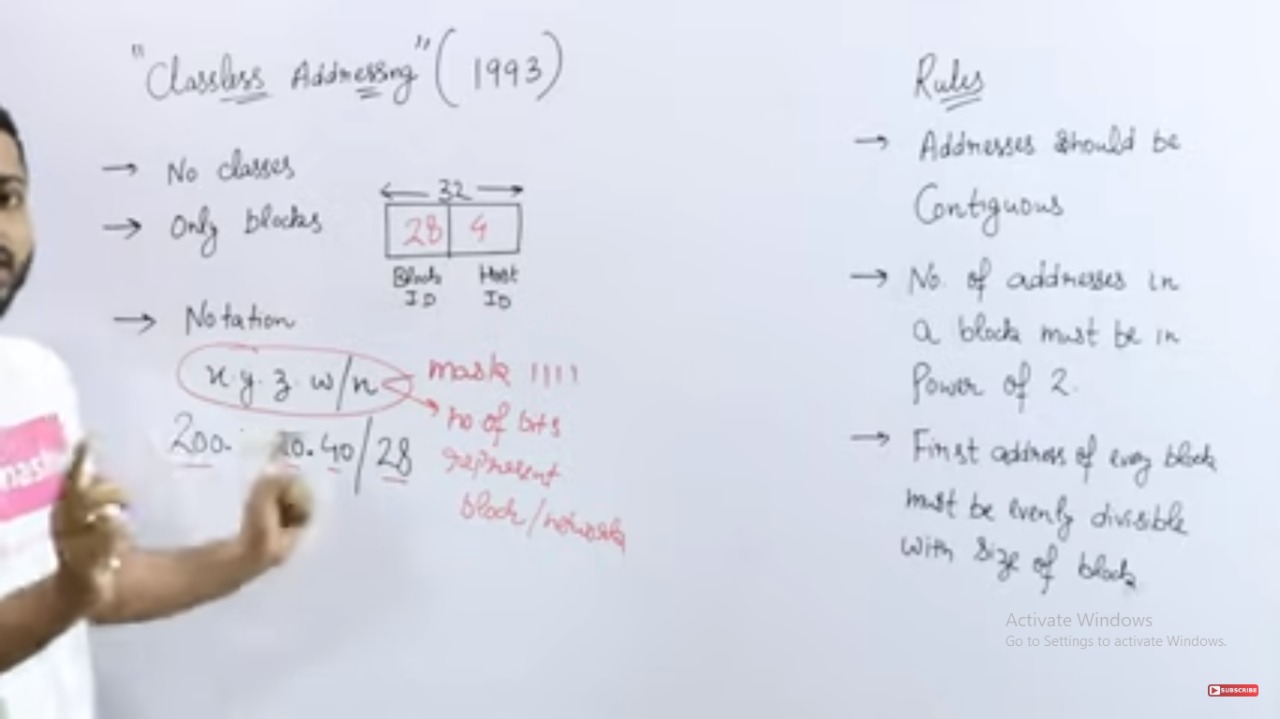 "Classless Addressing" (1993)
→ No classes
→ Only blocks
← 32 →
28 4
Block Host
ID ID
→ Notation
x.y.z.w/n
mask 1111
no of bits
represent
block/network
200. 20.40/28
Rules
→ Addresses should be
Contiguous
→ No. of addresses in
a block must be in
Power of 2.
→ First address of every block
must be evenly divisible
with size of block
Activate Windows
Go to Settings to activate Windows.
SUBSCRIBE